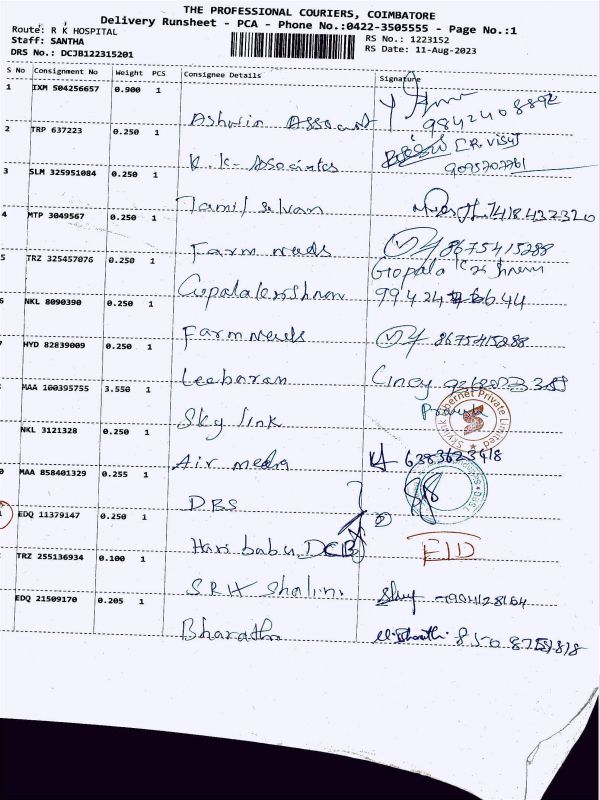 THE PROFESSIONAL COURIERS, COIMBATORE
Delivery Runsheet - PCA - Phone No.:0422-3505555 - Page No.:1
Route: R K HOSPITAL RS No.: 1223152
Staff: SANTHA RS Date: 11-Aug-2023
DRS No.: DCJB122315201
S No Consignment No Weight PCS Consignee Details Signature
1 IXM 504256657 0.900 1
Ashwin 9842408892
2 TRP 637223 0.250 1
K.K- Associates
3 SLM 325951084 0.250 1
Tamil selvan 7418422320
4 MTP 3049567 0.250 1
Farm needs 8675415288
5 TRZ 325457076 0.250 1 Gopala Krishnan
Gopalakrishnan 99424 6644
NKL 8090390 0.250 1
Farm needs 8675415288
HYD 82839009 0.250 1
Leebaran Cincy
MAA 100395755 3.550 1
Sky link
NKL 3121328 0.250 1
Air media 6383623418
MAA 858401329 0.255 1
DBS
EDQ 11379147 0.250 1
Hari babu DCB EID
TRZ 255136934 0.100 1
SRH Shalini
EDQ 21509170 0.205 1
Bharathi